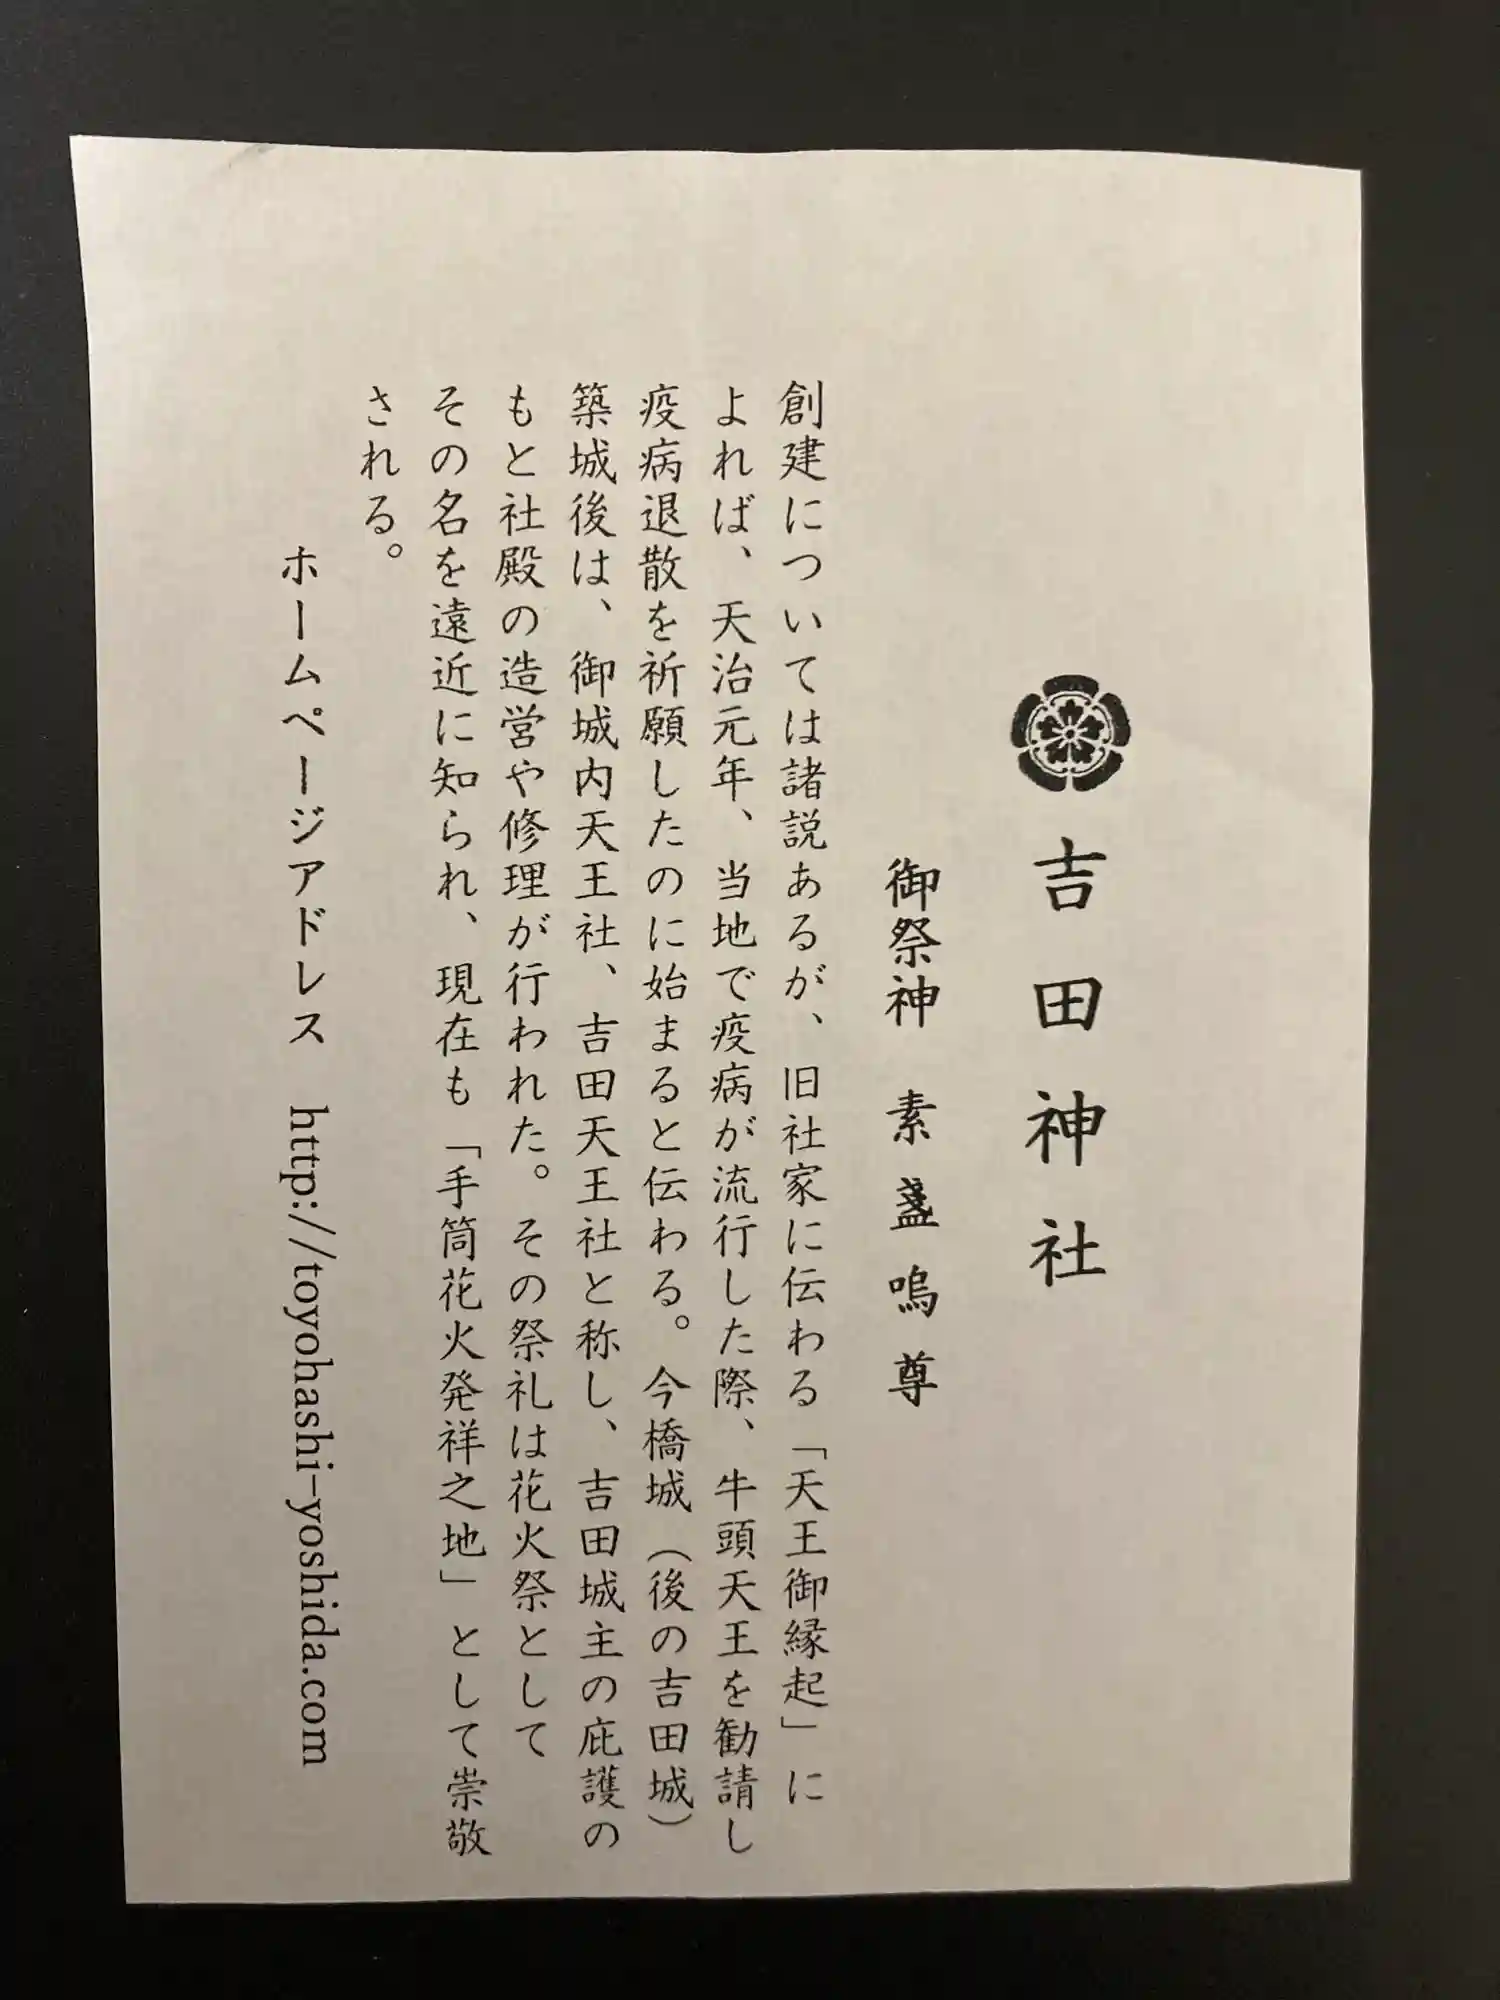 吉田神社
御祭神 素盞嗚尊
創建については諸説あるが、旧社家に伝わる「天王御縁起」に
よれば、天治元年、当地で疫病が流行した際、牛頭天王を勧請し
疫病退散を祈願したのに始まると伝わる。今橋城（後の吉田城）
築城後は、御城内天王社、吉田天王社と称し、吉田城主の庇護の
もと社殿の造営や修理が行われた。その祭礼は花火祭として
その名を遠近に知られ、現在も「手筒花火発祥之地」として崇敬
される。
ホームページアドレス http://toyohashi-yoshida.com